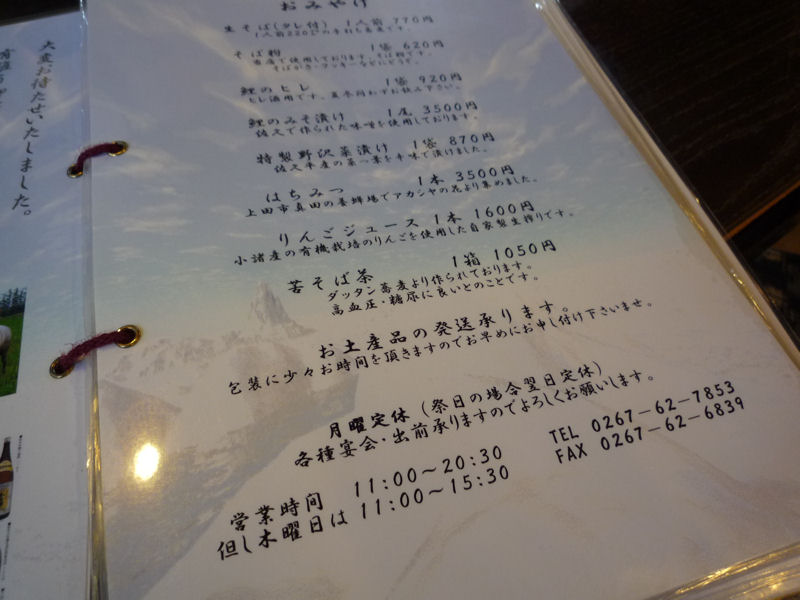 大変お待たせいたしました。
おみやげ
生そば(タレ付) 1人前 770円
1人前220gの手打ち蕎麦です。
そば粉 1袋 620円
当店で使用しております、そば粉です。
そばがき・クッキーなどにどうぞ。
鯉のヒレ 1袋 920円
ヒレ酒用です。夏冬問わずお飲み下さい。
鯉のみそ漬け 1尾 3500円
佐久で作られた味噌を使用しております。
特製野沢菜漬け 1袋 870円
佐久平産の菜っ葉を辛味で漬けました。
はちみつ 1本 3500円
上田市真田の養蜂場でアカシヤの花より集めました。
りんごジュース 1本 1600円
小諸産の有機栽培のりんごを使用した自家製生搾りです。
苦そば茶 1箱 1050円
ダッタン蕎麦より作られております。
高血圧・糖尿に良いとのことです。
お土産品の発送承ります。
包装に少々お時間を頂きますのでお早めにお申し付け下さいませ。
月曜定休(祭日の場合翌日定休)
各種宴会・出前承りますのでよろしくお願いします。
営業時間 11:00～20:30
但し木曜日は 11:00～15:30
TEL 0267－62－7853
FAX 0267－62－6839